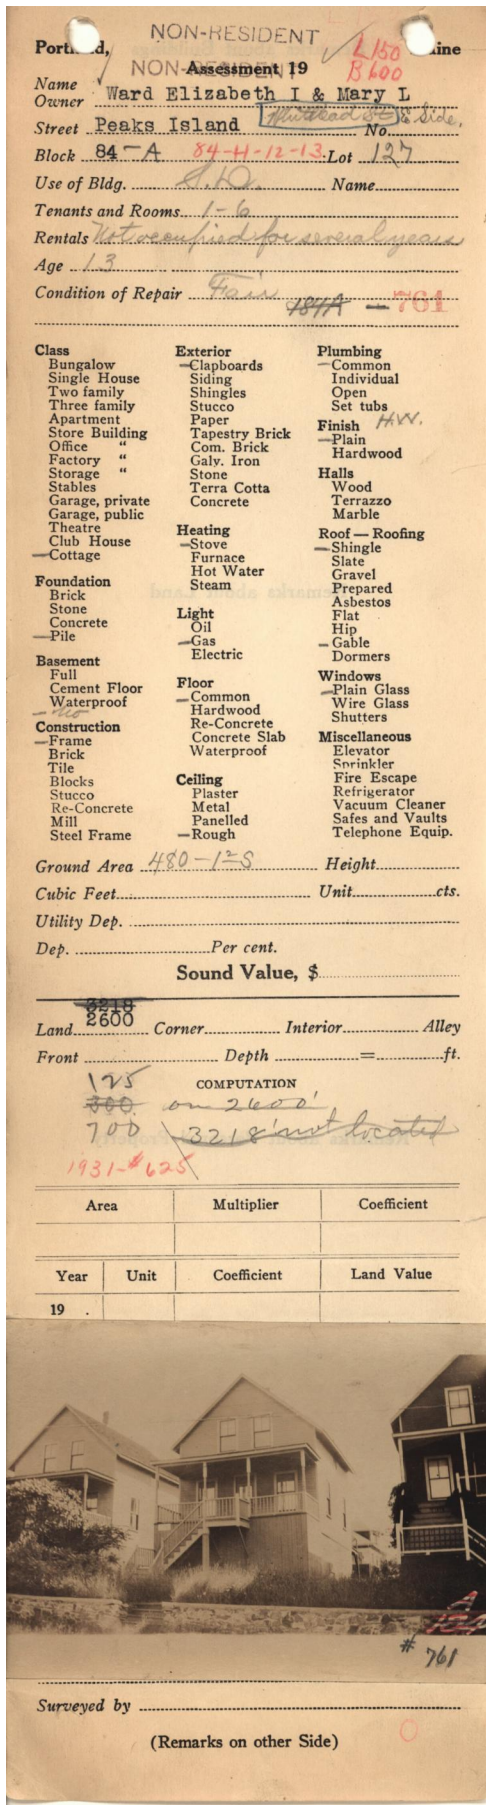 NON-RESIDENT
Portland, Maine
L150
NON-RESIDENT
Assessment, 19
B600
Name Owner Ward Elizabeth I & Mary L
Street Peaks Island Whitehead St E Side, No.
Block 84-A 84-H-12-13 Lot 127
Use of Bldg. S.D. Name
Tenants and Rooms 1-6
Rentals Not occupied for several years
Age 13
Condition of Repair Fair
184A - 761
Class
Bungalow
Single House
Two family
Three family
Apartment
Store Building
Office "
Factory "
Storage "
Stables
Garage, private
Garage, public
Theatre
Club House
Cottage
Foundation
Brick
Stone
Concrete
Pile
Basement
Full
Cement Floor
Waterproof
no
Construction
Frame
Brick
Tile
Blocks
Stucco
Re-Concrete
Mill
Steel Frame
Exterior
Clapboards
Siding
Shingles
Stucco
Paper
Tapestry Brick
Com. Brick
Galv. Iron
Stone
Terra Cotta
Concrete
Heating
Stove
Furnace
Hot Water
Steam
Light
Oil
Gas
Electric
Floor
Common
Hardwood
Re-Concrete
Concrete Slab
Waterproof
Ceiling
Plaster
Metal
Panelled
Rough
Plumbing
Common
Individual
Open
Set tubs
Finish H.W.
Plain
Hardwood
Halls
Wood
Terrazzo
Marble
Roof — Roofing
Shingle
Slate
Gravel
Prepared
Asbestos
Flat
Hip
Gable
Dormers
Windows
Plain Glass
Wire Glass
Shutters
Miscellaneous
Elevator
Sprinkler
Fire Escape
Refrigerator
Vacuum Cleaner
Safes and Vaults
Telephone Equip.
Ground Area 480-1½S Height
Cubic Feet Unit cts.
Utility Dep.
Dep. Per cent.
Sound Value, $
3218
Land 2600 Corner Interior Alley
Front Depth = ft.
125 COMPUTATION
300 on 2600'
700 3218' not located
1931-$625
Area Multiplier Coefficient
Year Unit Coefficient Land Value
19 .
# 761
Surveyed by
(Remarks on other Side)